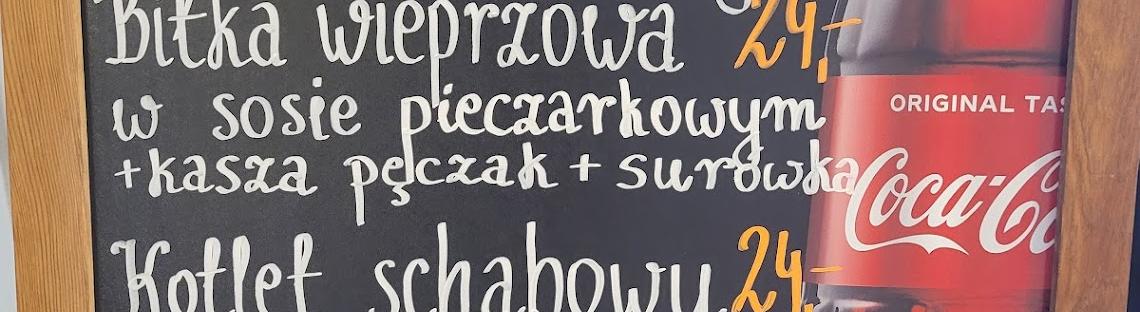 Bitka wieprzowa 24,-
w sosie pieczarkowym
+kasza pęczak + surówka
Kotlet schabowy 24,-
ORIGINAL TAS
Coca-Co